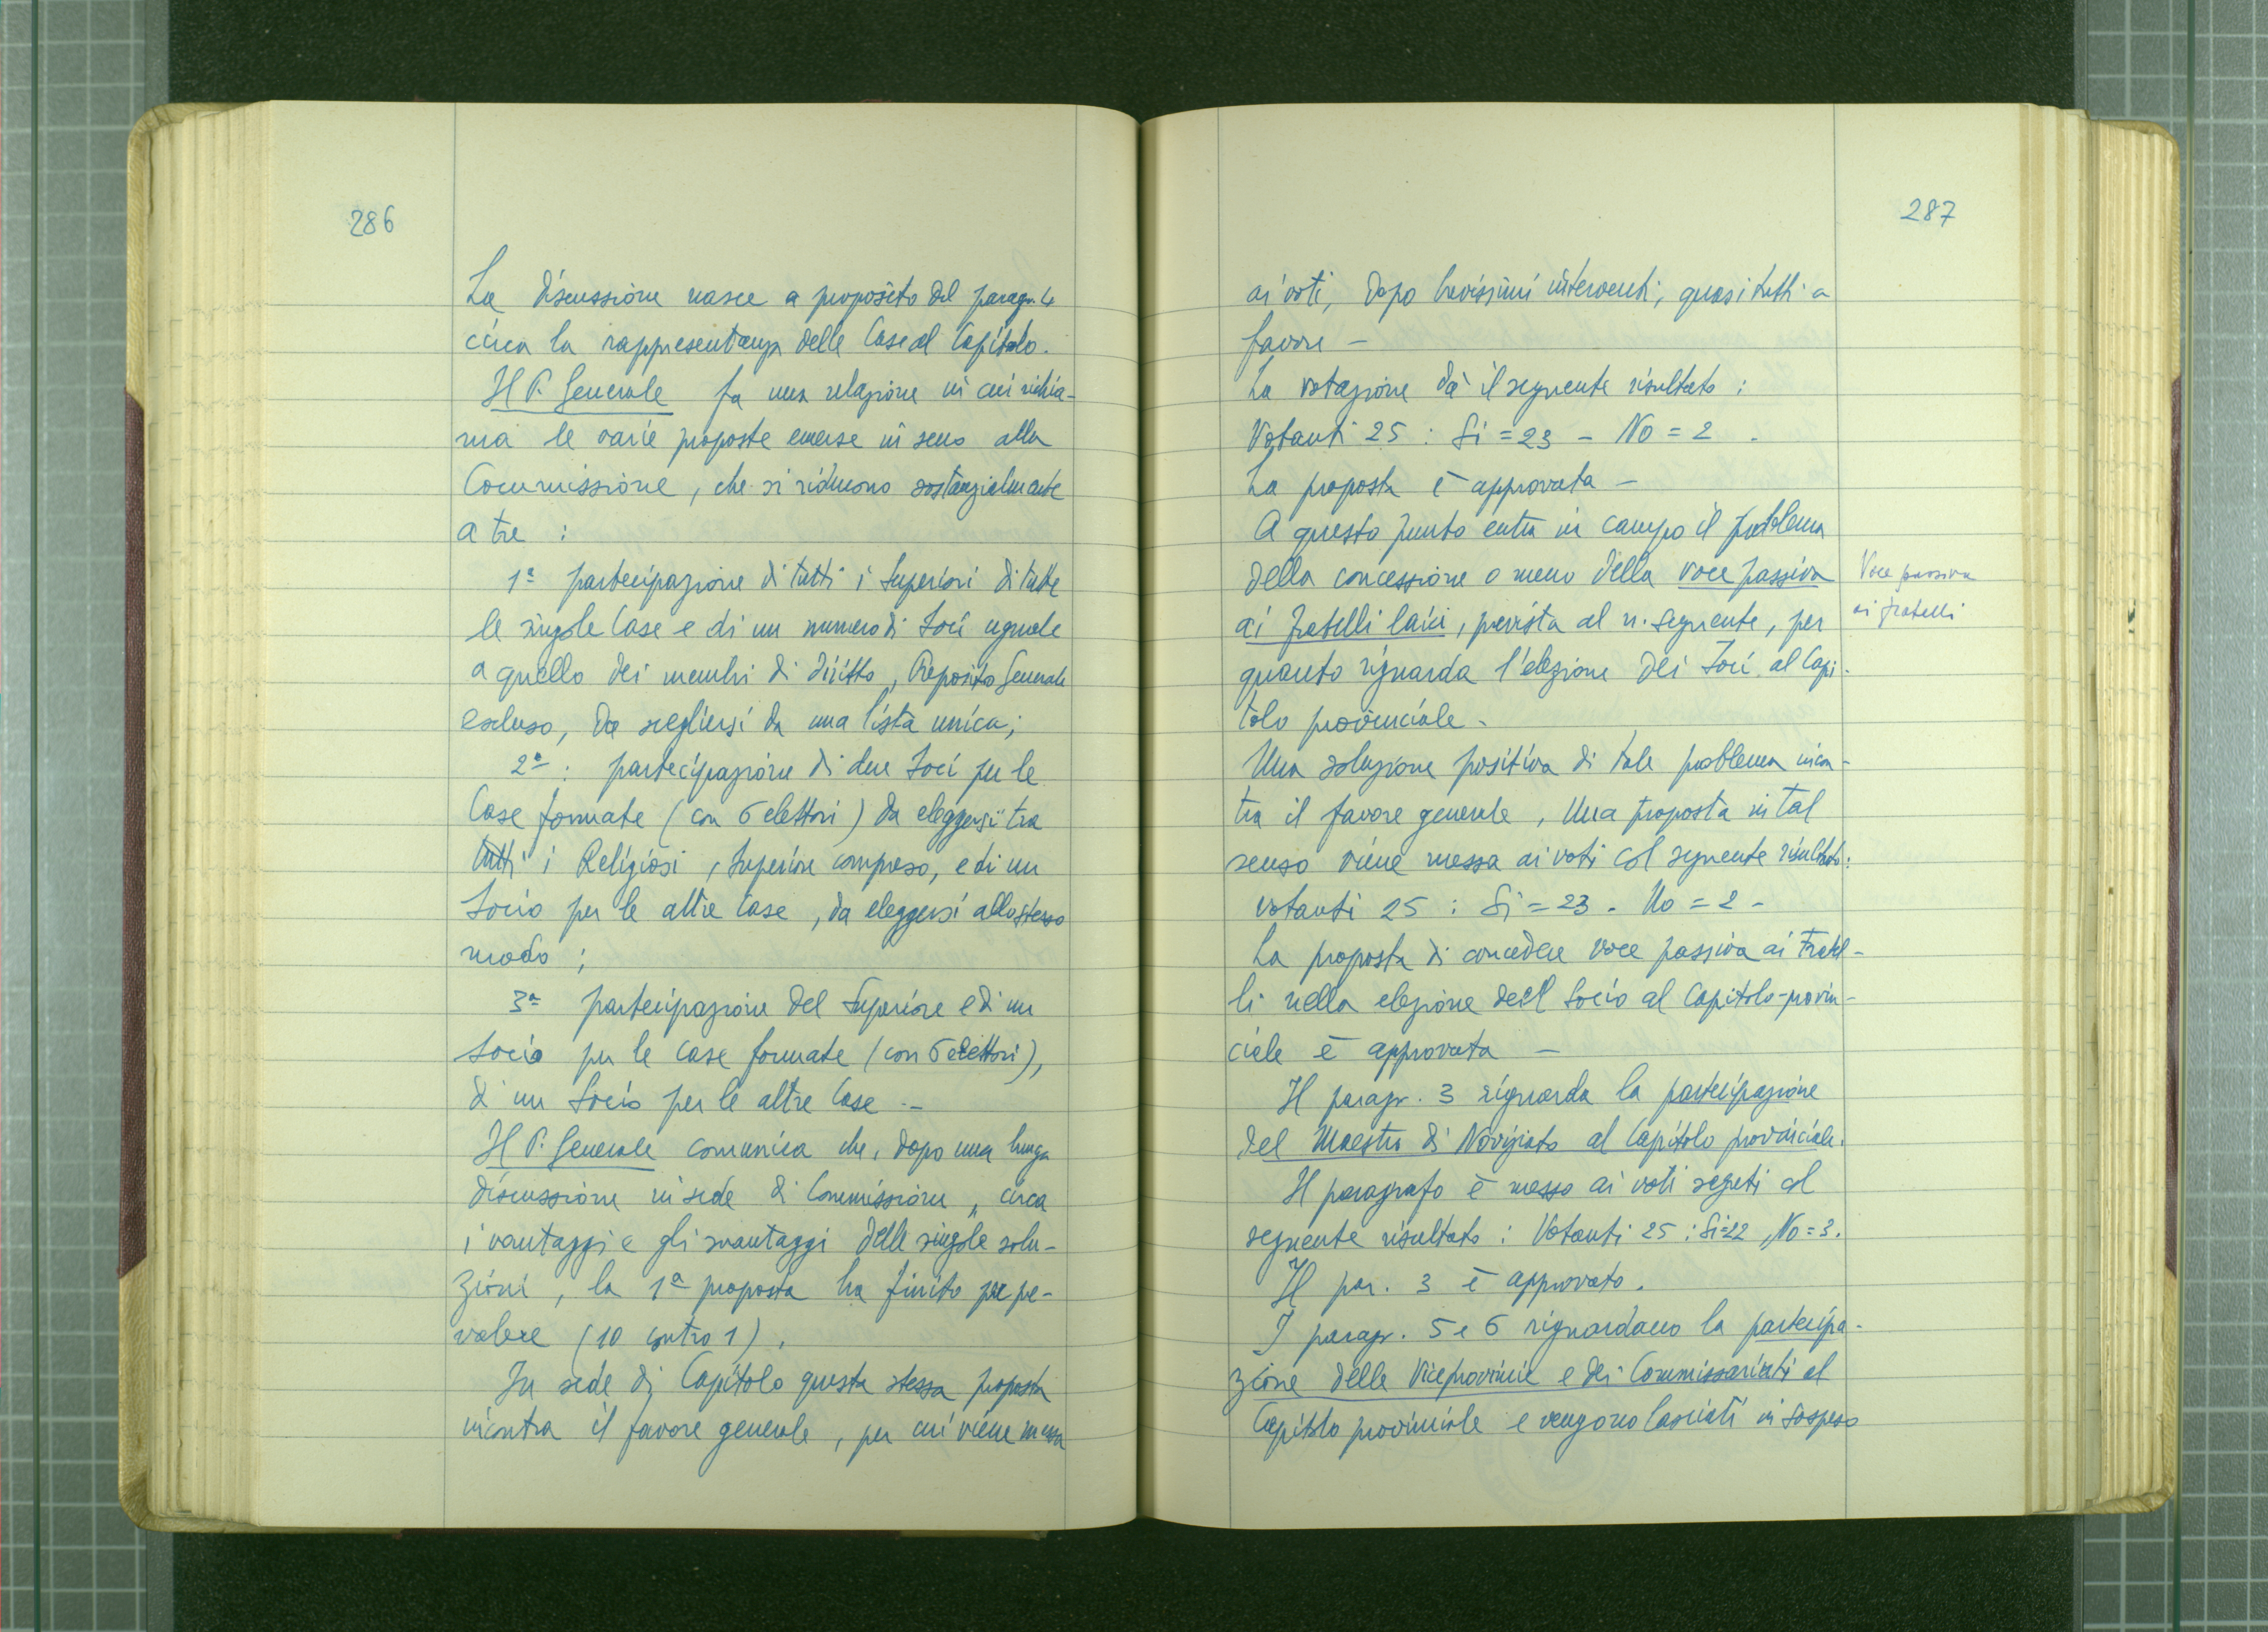 286
La discussione nasce a proposito del paragr. 4
circa la rappresentanza delle Case al Capitolo.
Il P. Generale fa una relazione in cui richia-
ma le varie proposte emerse in seno alla
Commissione, che si riducono sostanzialmente
a tre :
1ª partecipazione di tutti i Superiori di tutte
le singole Case e di un numero di Soci uguale
a quello dei membri di diritto, Preposito Generale
escluso, da scegliersi da una lista unica;
2ª : partecipazione di due Soci per le
Case formate (con 6 elettori) da eleggersi tra
tutti i Religiosi, Superiore compreso, e di un
Socio per le altre Case, da eleggersi allo stesso
modo ;
3ª partecipazione del Superiore e di un
Socio per le Case formate (con 6 elettori),
di un Socio per le altre Case -
Il P. Generale comunica che, dopo una lunga
discussione in sede di Commissione, circa
i vantaggi e gli svantaggi delle singole solu-
zioni, la 1ª proposta ha finito per pre-
valere (10 contro 1).
In sede di Capitolo questa stessa proposta
incontra il favore generale, per cui viene messa
287
ai voti, dopo brevissimi interventi, quasi tutti a
favore -
La votazione dà il seguente risultato :
Votanti 25 : Si = 23 - No = 2 -
La proposta è approvata -
A questo punto entra in campo il problema
della concessione o meno della voce passiva
ai fratelli laici, prevista al n. seguente, per
quanto riguarda l'elezione dei Soci al Capi-
tolo provinciale -
Voce passiva
ai fratelli
Una soluzione positiva di tale problema incon-
tra il favore generale, Una proposta in tal
senso viene messa ai voti col seguente risultato:
votanti 25 : Si = 23 - No = 2 -
La proposta di concedere voce passiva ai Fratel-
li nella elezione del Socio al Capitolo-provin-
ciale è approvata -
Il paragr. 3 riguarda la partecipazione
del Maestro di Noviziato al Capitolo provinciale.
Il paragrafo è messo ai voti segreti col
seguente risultato : Votanti 25 : Si = 22, No = 3.
Il par. 3 è approvato.
I paragr. 5 e 6 riguardano la partecipa-
zione delle Viceprovincie e dei Commissariati al
Capitolo provinciale e vengono lasciati in sospeso